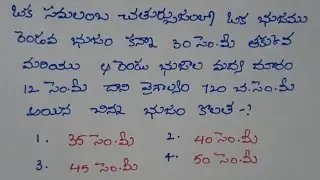 ఒక సమలంబ చతుర్భుజంలో ఒక భుజము
రెండవ భుజం కన్నా 30 సెం.మీ తక్కువ
మరియు ఆ రెండు భుజాల మధ్య దూరం
12 సెం.మీ దాని వైశాల్యం 720 చ.సెం.మీ
అయిన చిన్న భుజం కొలత -?
1. 35 సెం.మీ 2. 40 సెం.మీ
3. 45 సెం.మీ 4. 50 సెం.మీ